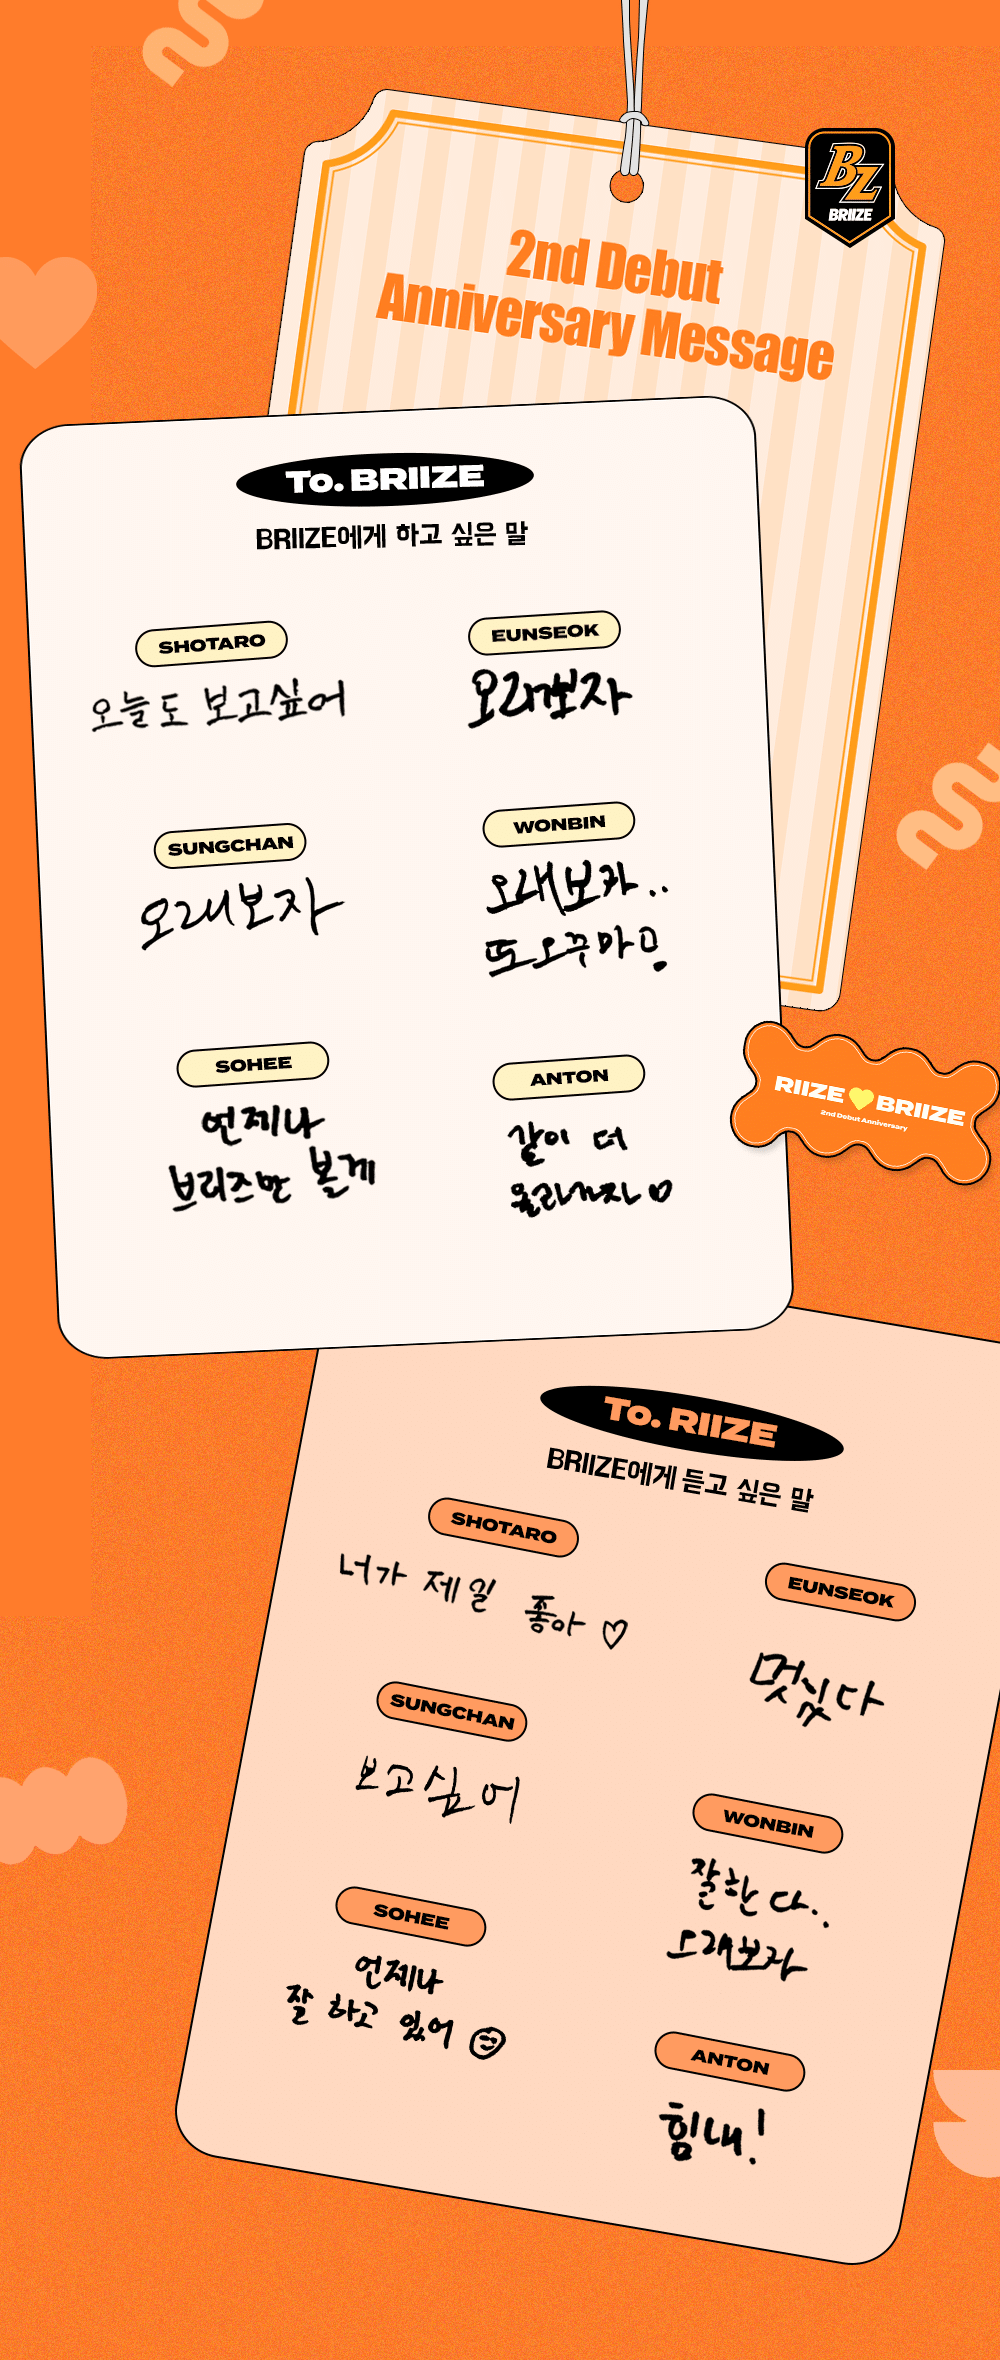 BZ
BRIIZE
2nd Debut
Anniversary Message
To. BRIIZE
BRIIZE에게 하고 싶은 말
SHOTARO
오늘도 보고싶어
EUNSEOK
오래보자
SUNGCHAN
오래보자
WONBIN
오래보자..
또오꾸마
SOHEE
언제나
브리즈만 볼게
ANTON
같이 더
올라가자♡
RIIZE💛BRIIZE
2nd Debut Anniversary
To. RIIZE
BRIIZE에게 듣고 싶은 말
SHOTARO
너가 제일 좋아♡
EUNSEOK
멋있다
SUNGCHAN
보고싶어
WONBIN
잘한다..
오래보자
SOHEE
언제나
잘 하고 있어
ANTON
힘내!